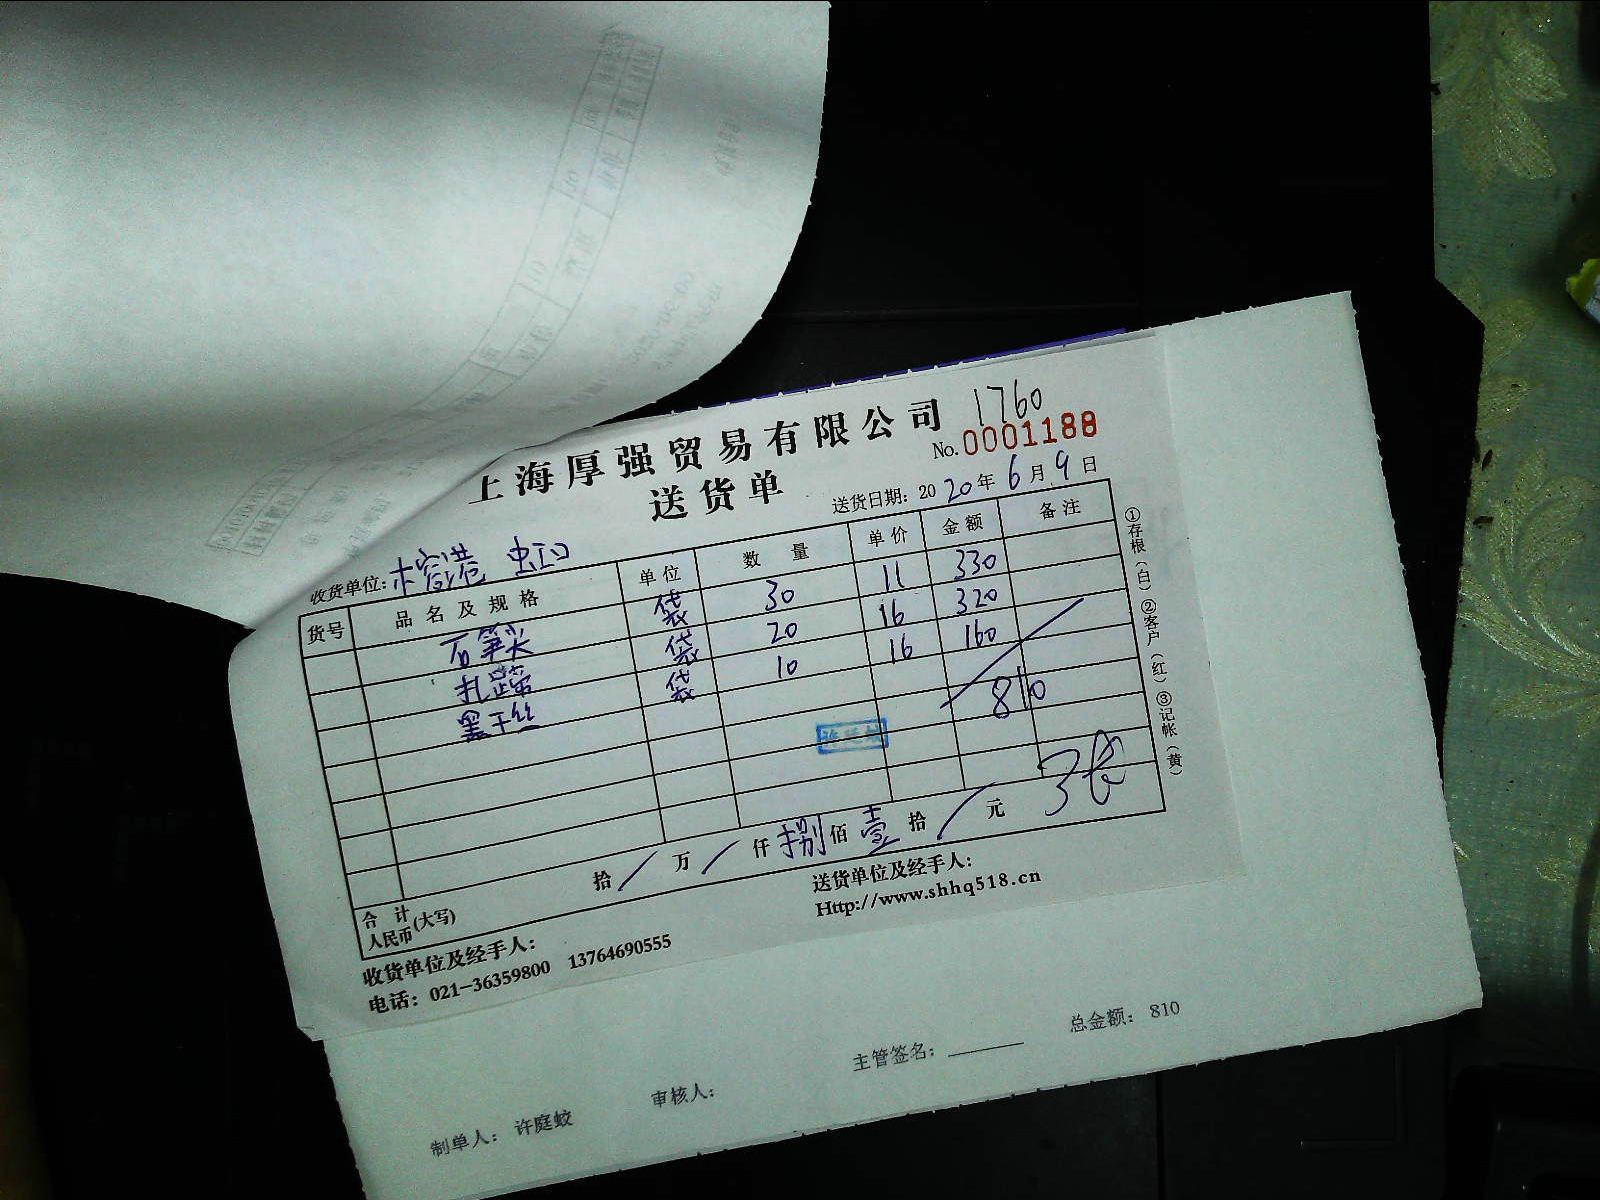 1760
上海厚强贸易有限公司
No. 0001188
送货单
送货日期: 2020年6月9日
收货单位: 榕港 虹口
货号 品名及规格 单位 数量 单价 金额 备注
石笋尖 袋 30 11 330
扎蹄 袋 20 16 320
黑干丝 袋 10 16 160
810
3张
合计人民币(大写) 拾/万/仟捌佰壹拾/元
收货单位及经手人:
送货单位及经手人:
电话: 021-36359800 13764690555
Http://www.shhq518.cn
①存根(白)②客户(红)③记帐(黄)
总金额: 810
主管签名:
审核人:
制单人: 许庭蛟